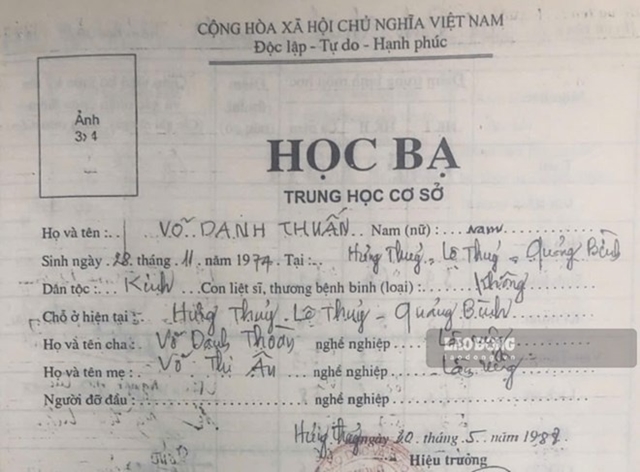 CỘNG HÒA XÃ HỘI CHỦ NGHĨA VIỆT NAM
Độc lập - Tự do - Hạnh phúc
Ảnh
3x4
HỌC BẠ
TRUNG HỌC CƠ SỞ
Họ và tên: VÕ DANH THUẤN Nam (nữ): Nam
Sinh ngày 28 tháng 11 năm 1974 Tại: Hưng Thuỷ - Lệ Thuỷ - Quảng Bình
Dân tộc: Kinh Con liệt sĩ, thương bệnh binh (loại): Không
Chỗ ở hiện tại: Hưng Thuỷ - Lệ Thuỷ - Quảng Bình
Họ và tên cha: Võ Danh nghề nghiệp
LAO ĐỘNG
Họ và tên mẹ: Võ Thị Ân nghề nghiệp
Người đỡ đầu: nghề nghiệp
Hưng Thuỷ ngày 20 tháng 5 năm 1987
Hiệu trưởng